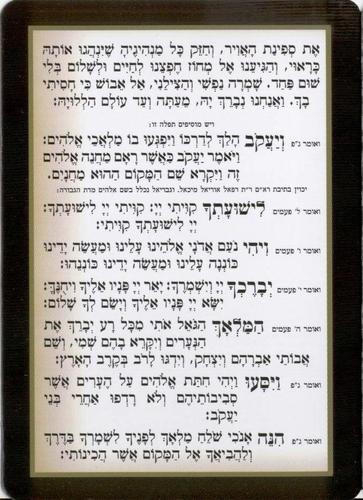 אֶת סְפִינַת הָאֲוִיר, וְחַזֵּק כָּל מַנְהִיגֶיהָ שֶׁיְּנַהֲגוּ אוֹתָהּ
כָּרָאוּי, וְהַגִּיעֵנוּ אֶל מְחוֹז חֶפְצֵנוּ לְחַיִּים וּלְשָׁלוֹם בְּלִי
שׁוּם פַּחַד. שָׁמְרָה נַפְשִׁי וְהַצִּילֵנִי, אַל אֵבוֹשׁ כִּי חָסִיתִי
בָךְ. וַאֲנַחְנוּ נְבָרֵךְ יָהּ, מֵעַתָּה וְעַד עוֹלָם הַלְלוּיָהּ:
ויש מוסיפים תפלה זו:
ואומר ג"פ וְיַעֲקֹב הָלַךְ לְדַרְכּוֹ וַיִּפְגְּעוּ בוֹ מַלְאֲכֵי אֱלֹהִים:
וַיֹּאמֶר יַעֲקֹב כַּאֲשֶׁר רָאָם מַחֲנֵה אֱלֹהִים
זֶה וַיִּקְרָא שֵׁם הַמָּקוֹם הַהוּא מַחֲנָיִם.
יכוין בתיבת רא"ם ר"ת רפאל אוריאל מיכאל, וגבריאל נכלל בשם אלהים מדת הגבורה:
ואומר ג' פעמים לִישׁוּעָתְךָ קִוִּיתִי יְיָ: קִוִּיתִי יְיָ לִישׁוּעָתְךָ:
יְיָ לִישׁוּעָתְךָ קִוִּיתִי:
ואומר ז' פעמים וִיהִי נֹעַם אֲדֹנָי אֱלֹהֵינוּ עָלֵינוּ וּמַעֲשֵׂה יָדֵינוּ
כּוֹנְנָה עָלֵינוּ וּמַעֲשֵׂה יָדֵינוּ כּוֹנְנֵהוּ:
ואומר י' פעמים יְבָרֶכְךָ יְיָ וְיִשְׁמְרֶךָ: יָאֵר יְיָ פָּנָיו אֵלֶיךָ וִיחֻנֶּךָּ:
יִשָּׂא יְיָ פָּנָיו אֵלֶיךָ וְיָשֵׂם לְךָ שָׁלוֹם:
ואומר ה' פעמים הַמַּלְאָךְ הַגֹּאֵל אֹתִי מִכָּל רָע יְבָרֵךְ אֶת
הַנְּעָרִים וְיִקָּרֵא בָהֶם שְׁמִי, וְשֵׁם
אֲבוֹתַי אַבְרָהָם וְיִצְחָק, וְיִדְגּוּ לָרֹב בְּקֶרֶב הָאָרֶץ:
ואומר ג"פ וַיִּסָּעוּ וַיְהִי חִתַּת אֱלֹהִים עַל הֶעָרִים אֲשֶׁר
סְבִיבוֹתֵיהֶם וְלֹא רָדְפוּ אַחֲרֵי בְּנֵי
יַעֲקֹב:
ואומר ג"פ הִנֵּה אָנֹכִי שֹׁלֵחַ מַלְאָךְ לְפָנֶיךָ לִשְׁמָרְךָ בַּדָּרֶךְ
וְלַהֲבִיאֲךָ אֶל הַמָּקוֹם אֲשֶׁר הֲכִינוֹתִי: